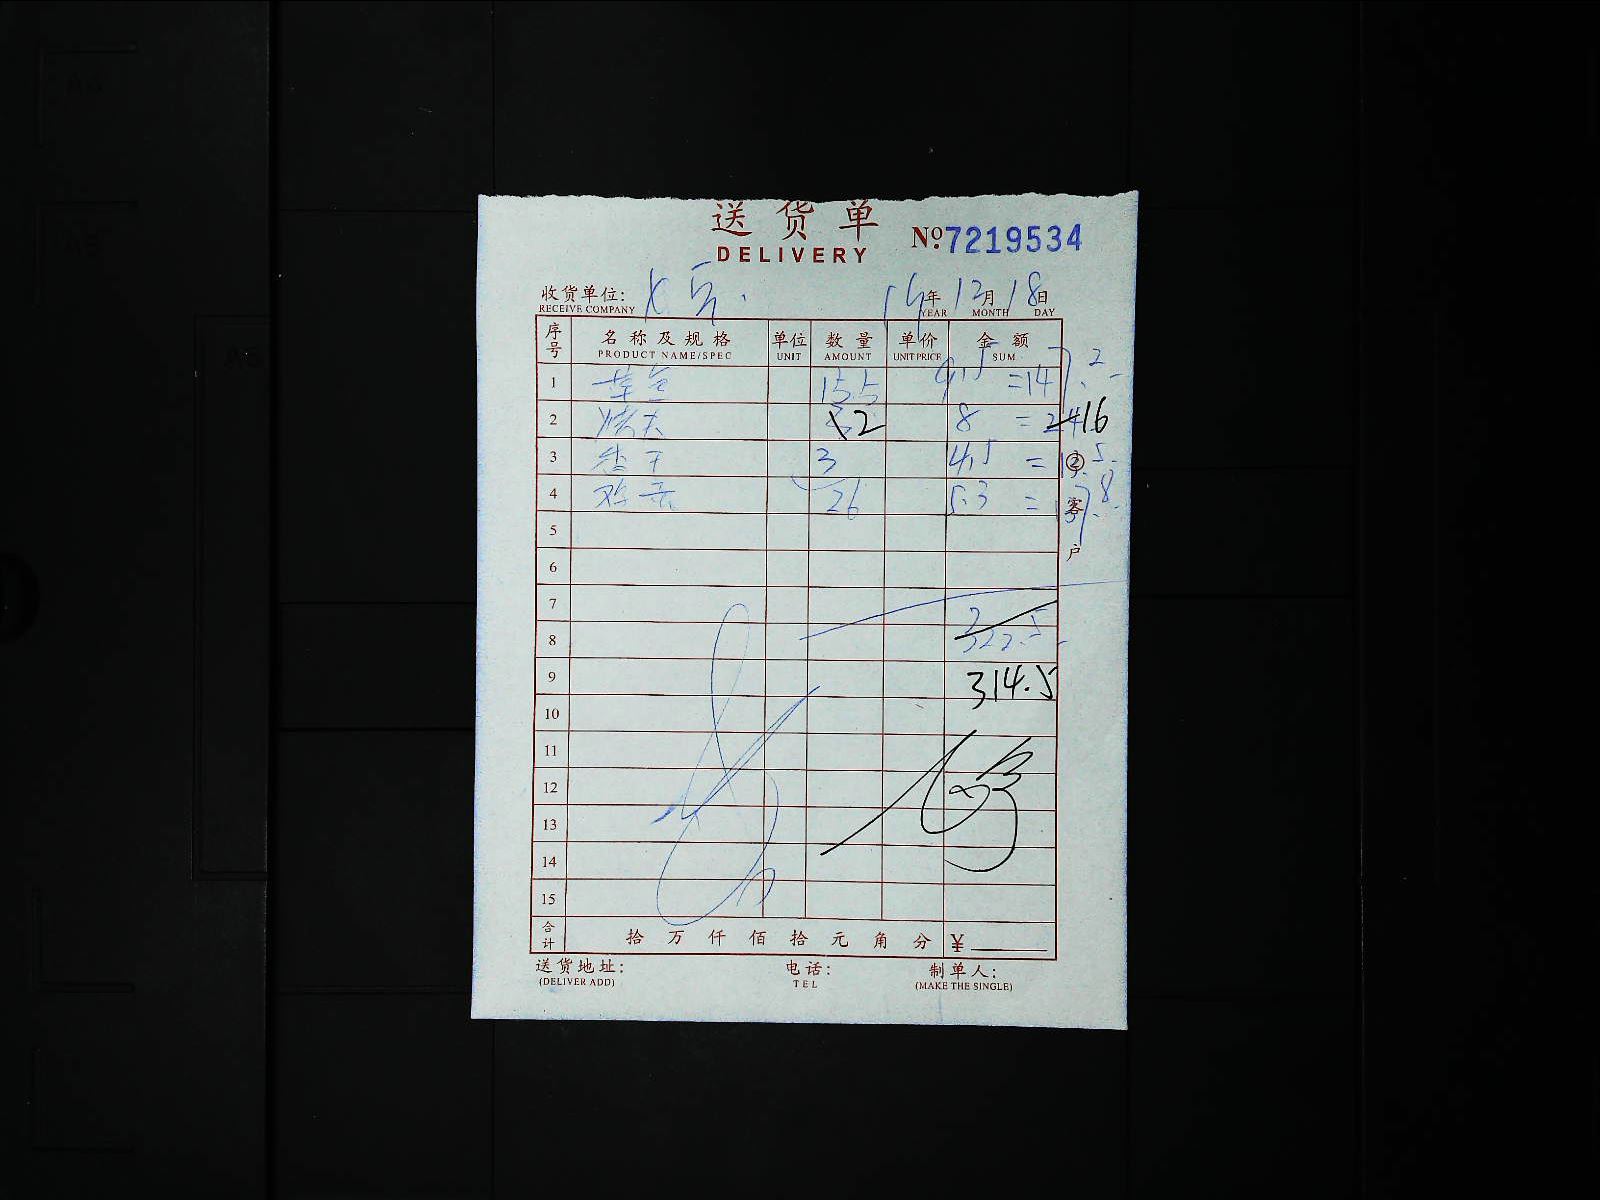 送货单
DELIVERY
№ 7219534
收货单位: 年 12月 18日
RECEIVE COMPANY YEAR MONTH DAY
序号 名称及规格 单位 数量 单价 金额
PRODUCT NAME/SPEC UNIT AMOUNT UNIT PRICE SUM
1 草鱼 15.5 9.5 =147.2
2 烤夫 2 8 = 24 16
3 香干 3 4.5 = 13.5
4 26 5.3 = 137.8
②客户
5
6
7
8 322.5
9 314.5
10
11
12
13
14
15
合计 拾 万 仟 佰 拾 元 角 分 ¥
送货地址: 电话: 制单人:
(DELIVER ADD) TEL (MAKE THE SINGLE)